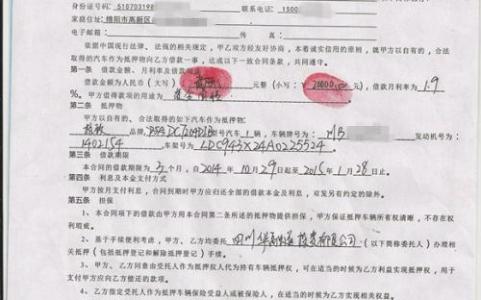 身份证号码:51070319 联系电话:1500
家庭住址:绵阳市高新
电子邮箱: 传真:
依据中国现行法律、法规的相关规定,甲乙双方经友好协商,本着诚实信用的原则,就甲方以自有的、合法
取得的汽车作为抵押物向乙方借款一事,达成以下一致合同条款,共同遵守。
第一条 借款金额、月利率及借款用途
借款金额为人民币(大写) 元整(小写: 借款月利率为1.9
%。甲方借得款项的用途为
第二条 抵押物
甲方以自有的、合法取得的如下汽车作为抵押物:
品牌, 型号汽车1辆,车辆牌号为:川B 发动机号为:
1402154 车架号为LDC943X24A0225524
第三条 借款期限
本合同的借款期为3个月,自2014年10月29日起至2015年1月28日止。
第四条 利息及本金支付方式
甲方按月支付利息,合同到期时甲方应归还全部的借款本金及利息,双发另有约定的除外。
第五条 担保
1、本合同项下的借款由甲方用本合同第二条所述的抵押物提供担保,甲方保证抵押车辆所有权清晰,不存在权
利瑕疵。
2、基于手续便利考虑,甲方、乙方均委托四川 投资有限公司(以下简称委托人)办理相
关抵押(包括抵押登记和解除抵押登记)手续。
3、甲方、乙方同意由受托人作为抵押权人代为持有车辆抵押权,可在适当的时候为乙方利益实现抵押权,用于
支付甲方应向乙方偿还的款项。
4、乙方指定受托人作为抵押车辆保险受益人或被保险人,在适当的时候为乙方利益实现相关权利。